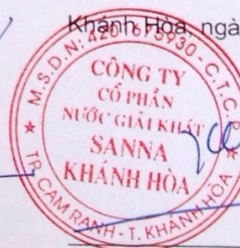 Khánh Hòa, ngà
M.S.D.N: 4201673930 - C.T.C.P
CÔNG TY
CỔ PHẦN
NƯỚC GIẢI KHÁT
SANNA
KHÁNH HÒA
TP. CAM RANH - T. KHÁNH HÒA